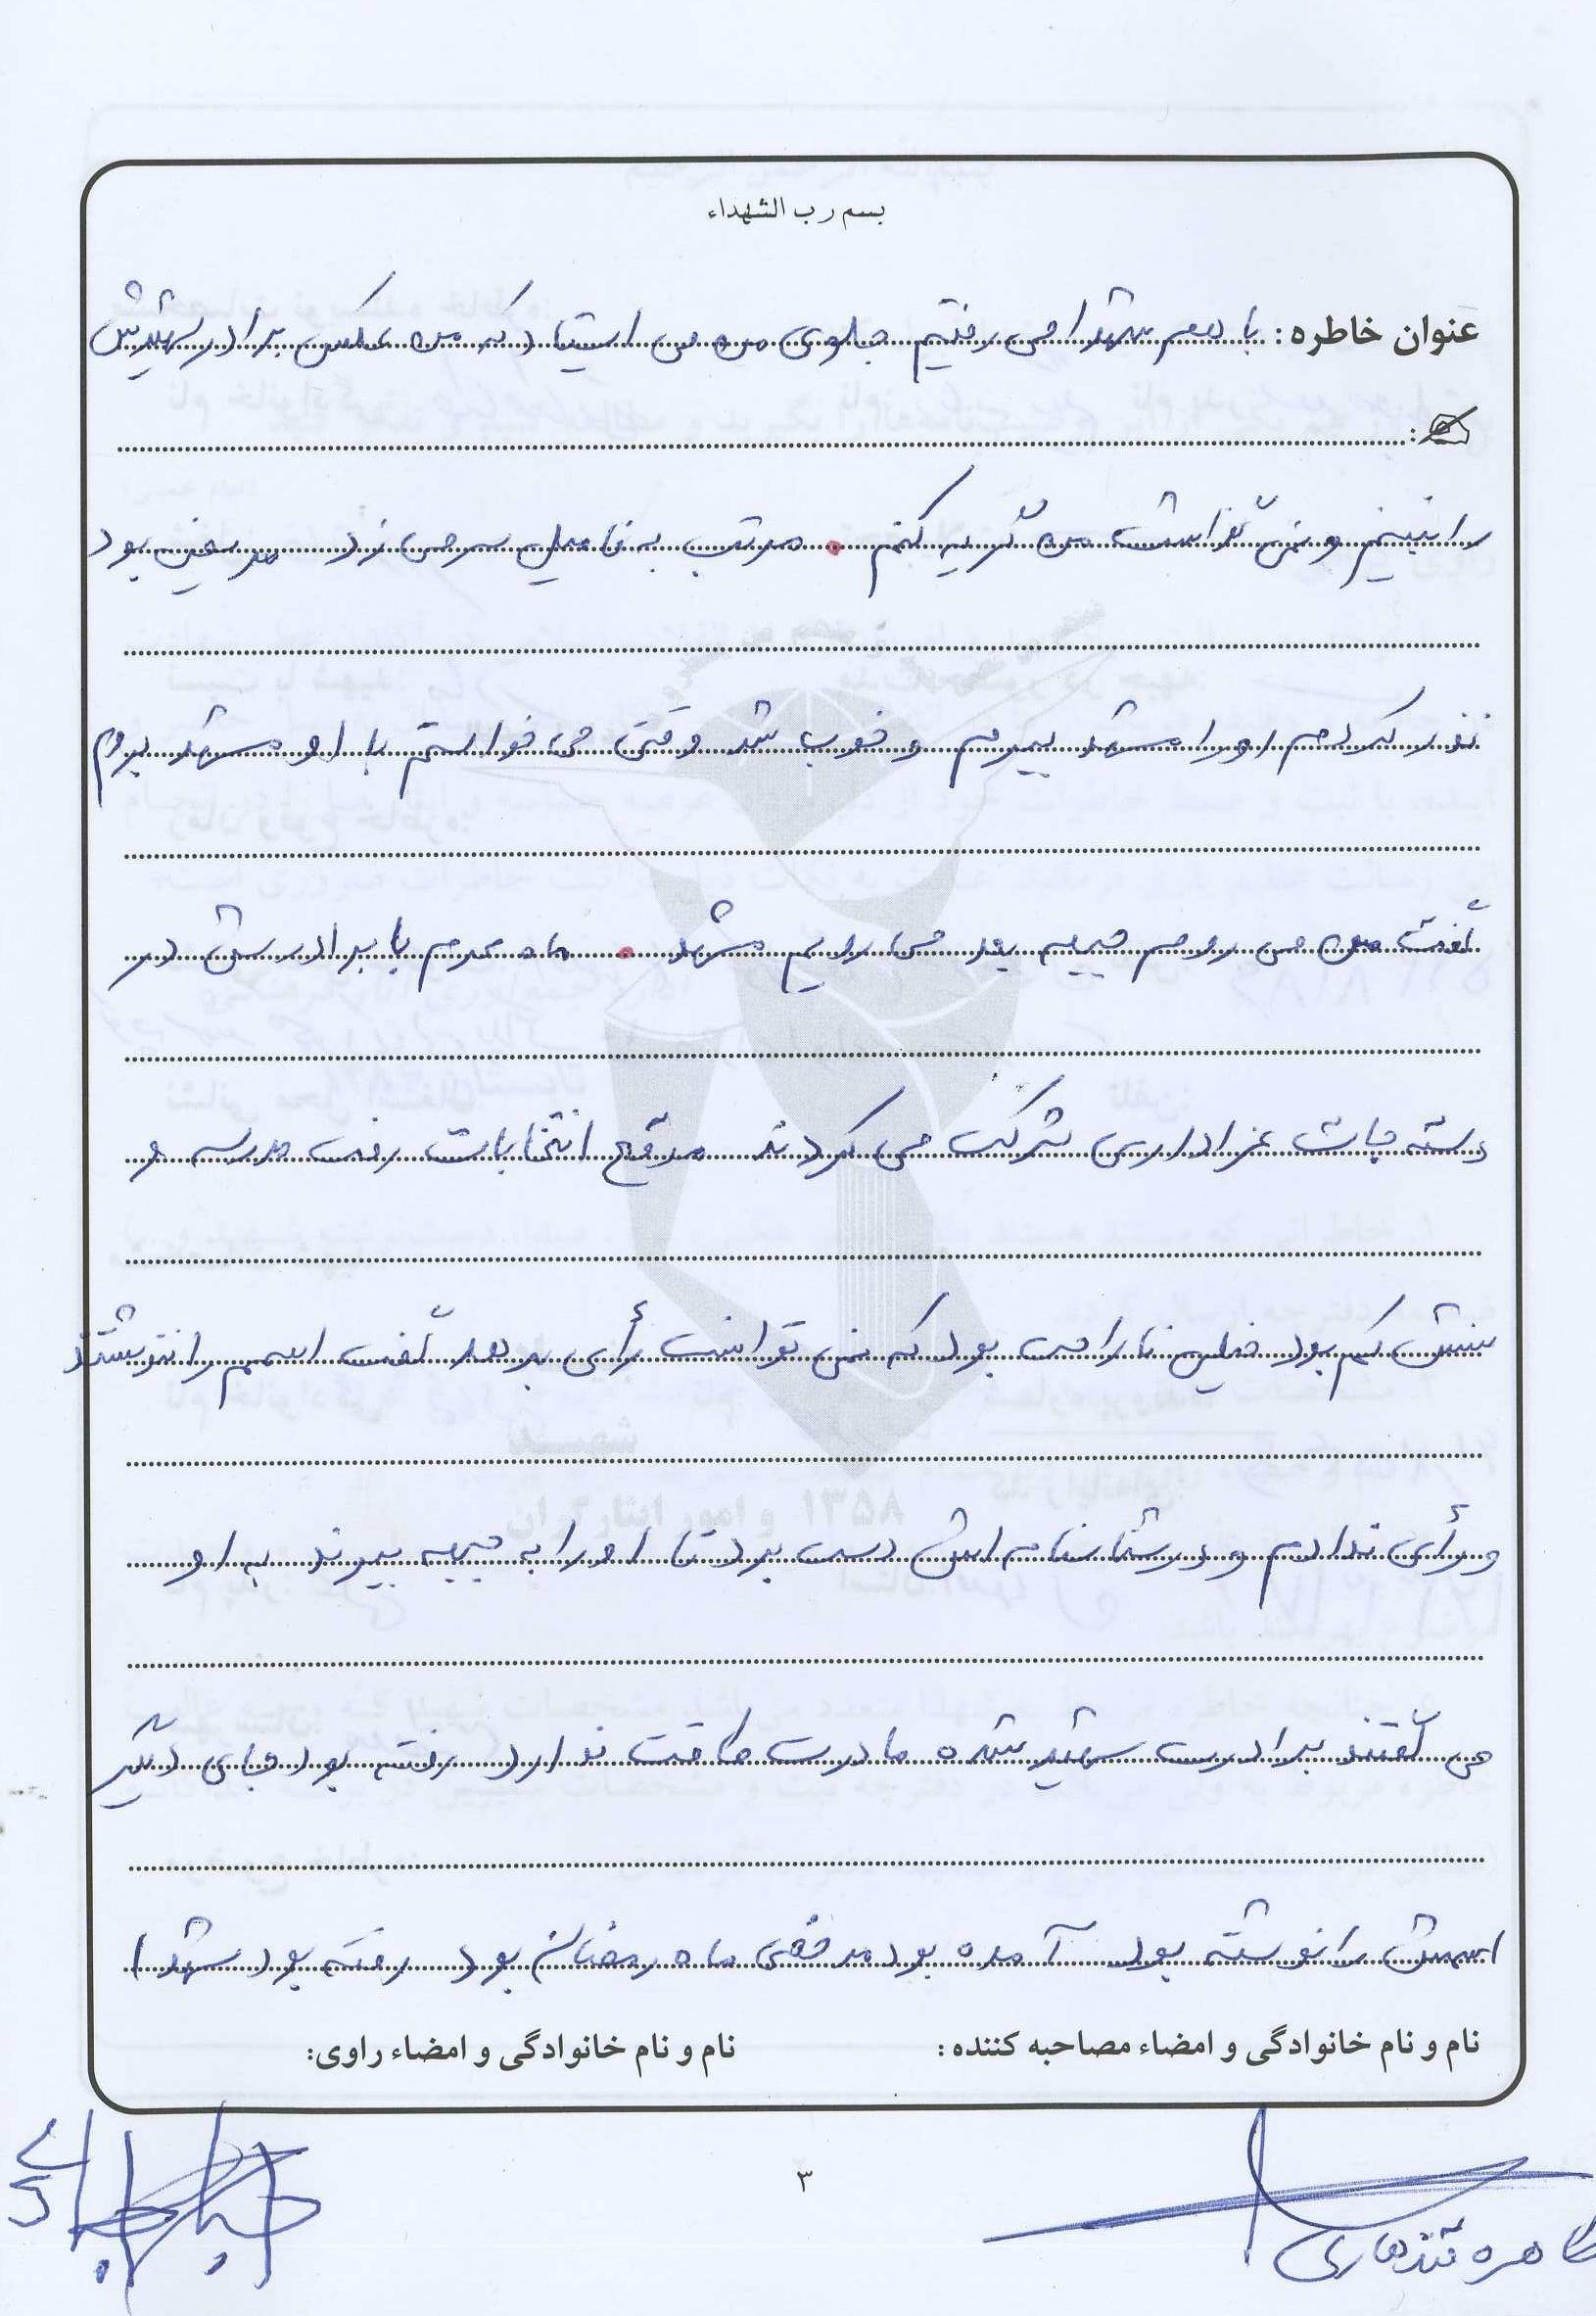 بسم رب الشهداء
عنوان خاطره: با هم شهدا می رفتیم جلوی من می ایستاد که من عکس برادر شهیدش
را نبینم و نمی گذاشت من گریه کنم . مرتب به فامیل سر می زد مریض بود
نذر کردم او را مشهد ببرم و خوب شد وقتی می خواستم با او مشهد بروم
گفت من می روم جبهه بعد می رویم مشهد . ماه محرم با برادرش در
دسته جات عزاداری شرکت می کردند موقع انتخابات رفت مدرسه و
سنش کم بود خیلی ناراحت بود که نمی توانست رأی بدهد گفت اسمم را ننوشتند
و رأی ندادم و در شناسنامه اش دست برد تا او را به جبهه ببرند به او
می گفتند برادرت شهید شده مادرت طاقت ندارد رفته بود جای دیگر
اسمش را نوشته بود آمده بود مرخصی ماه رمضان بود رفته بود شهدا
نام و نام خانوادگی و امضاء مصاحبه کننده: نام و نام خانوادگی و امضاء راوی:
طاهره قندهاری
۳